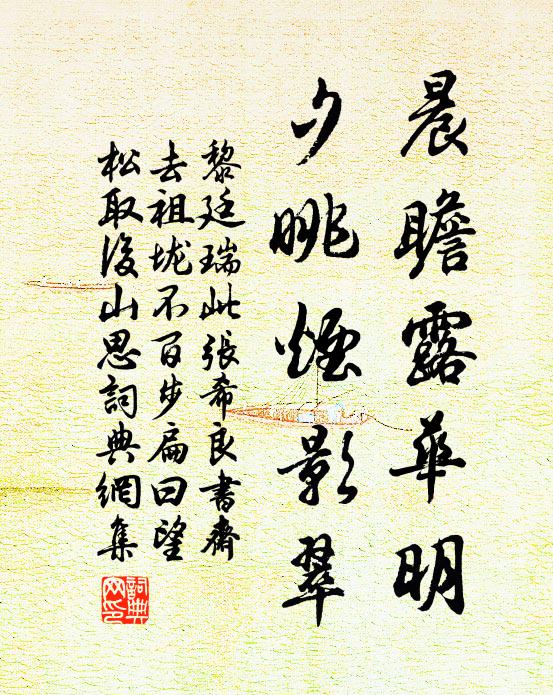 晨瞻露華明
夕眺煙影翠
黎廷瑞此張希良書齋
去祖垅不百步扁曰望
松取後山思詞典網集
詞典網印